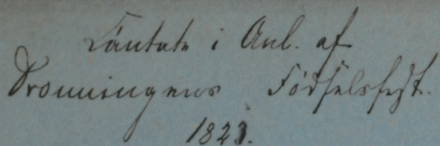 Cantate i Anl. af
Dronningens Födselsfest.
1823.